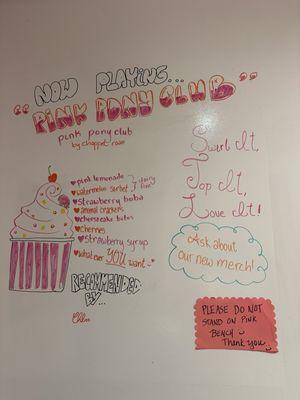 NOW PLAYING...
"PINK PONY CLUB"
pink pony club
by chappell roan
pink lemonade
watermelon sorbet
dairy free
strawberry boba
animal crackers
cheesecake bites
cherries
strawberry syrup
what ever YOU want
RECOMMENDED
BY...
Swirl It,
Top It,
Love It!
Ask about
our new merch!
PLEASE DO NOT
STAND ON PINK
BENCH
Thank you